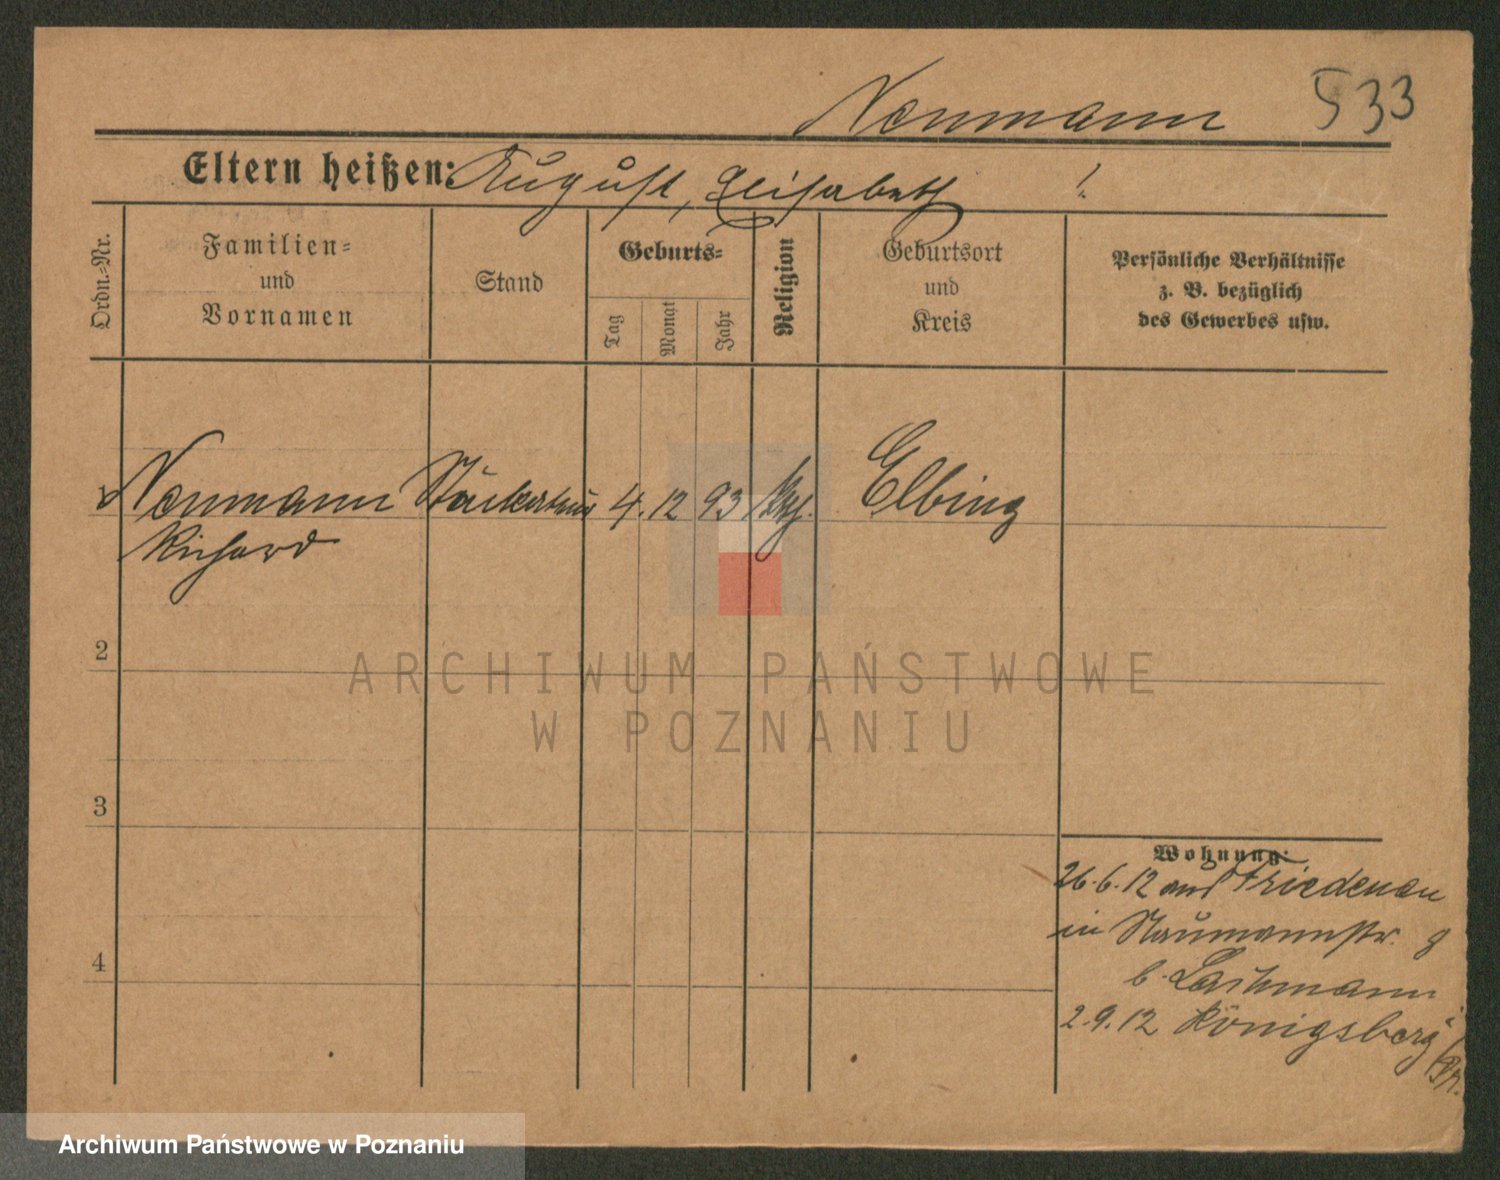 Neumann 533
Eltern heißen: August, Elisabeth
Ordn.-Nr.
Familien-
und
Vornamen
Stand
Geburts-
Tag
Monat
Jahr
Religion
Geburtsort
und
Kreis
Persönliche Verhältnisse
z. B. bezüglich
des Gewerbes usw.
1 Neumann 4. 12 93 Elbing
Richard
2
3
4
Wohnung:
26.6.12 aus Friedenau
in Naumannstr. 9
b.
2.9.12 Königsberg
/Pr.
ARCHIWUM PAŃSTWOWE
W POZNANIU
Archiwum Państwowe w Poznaniu